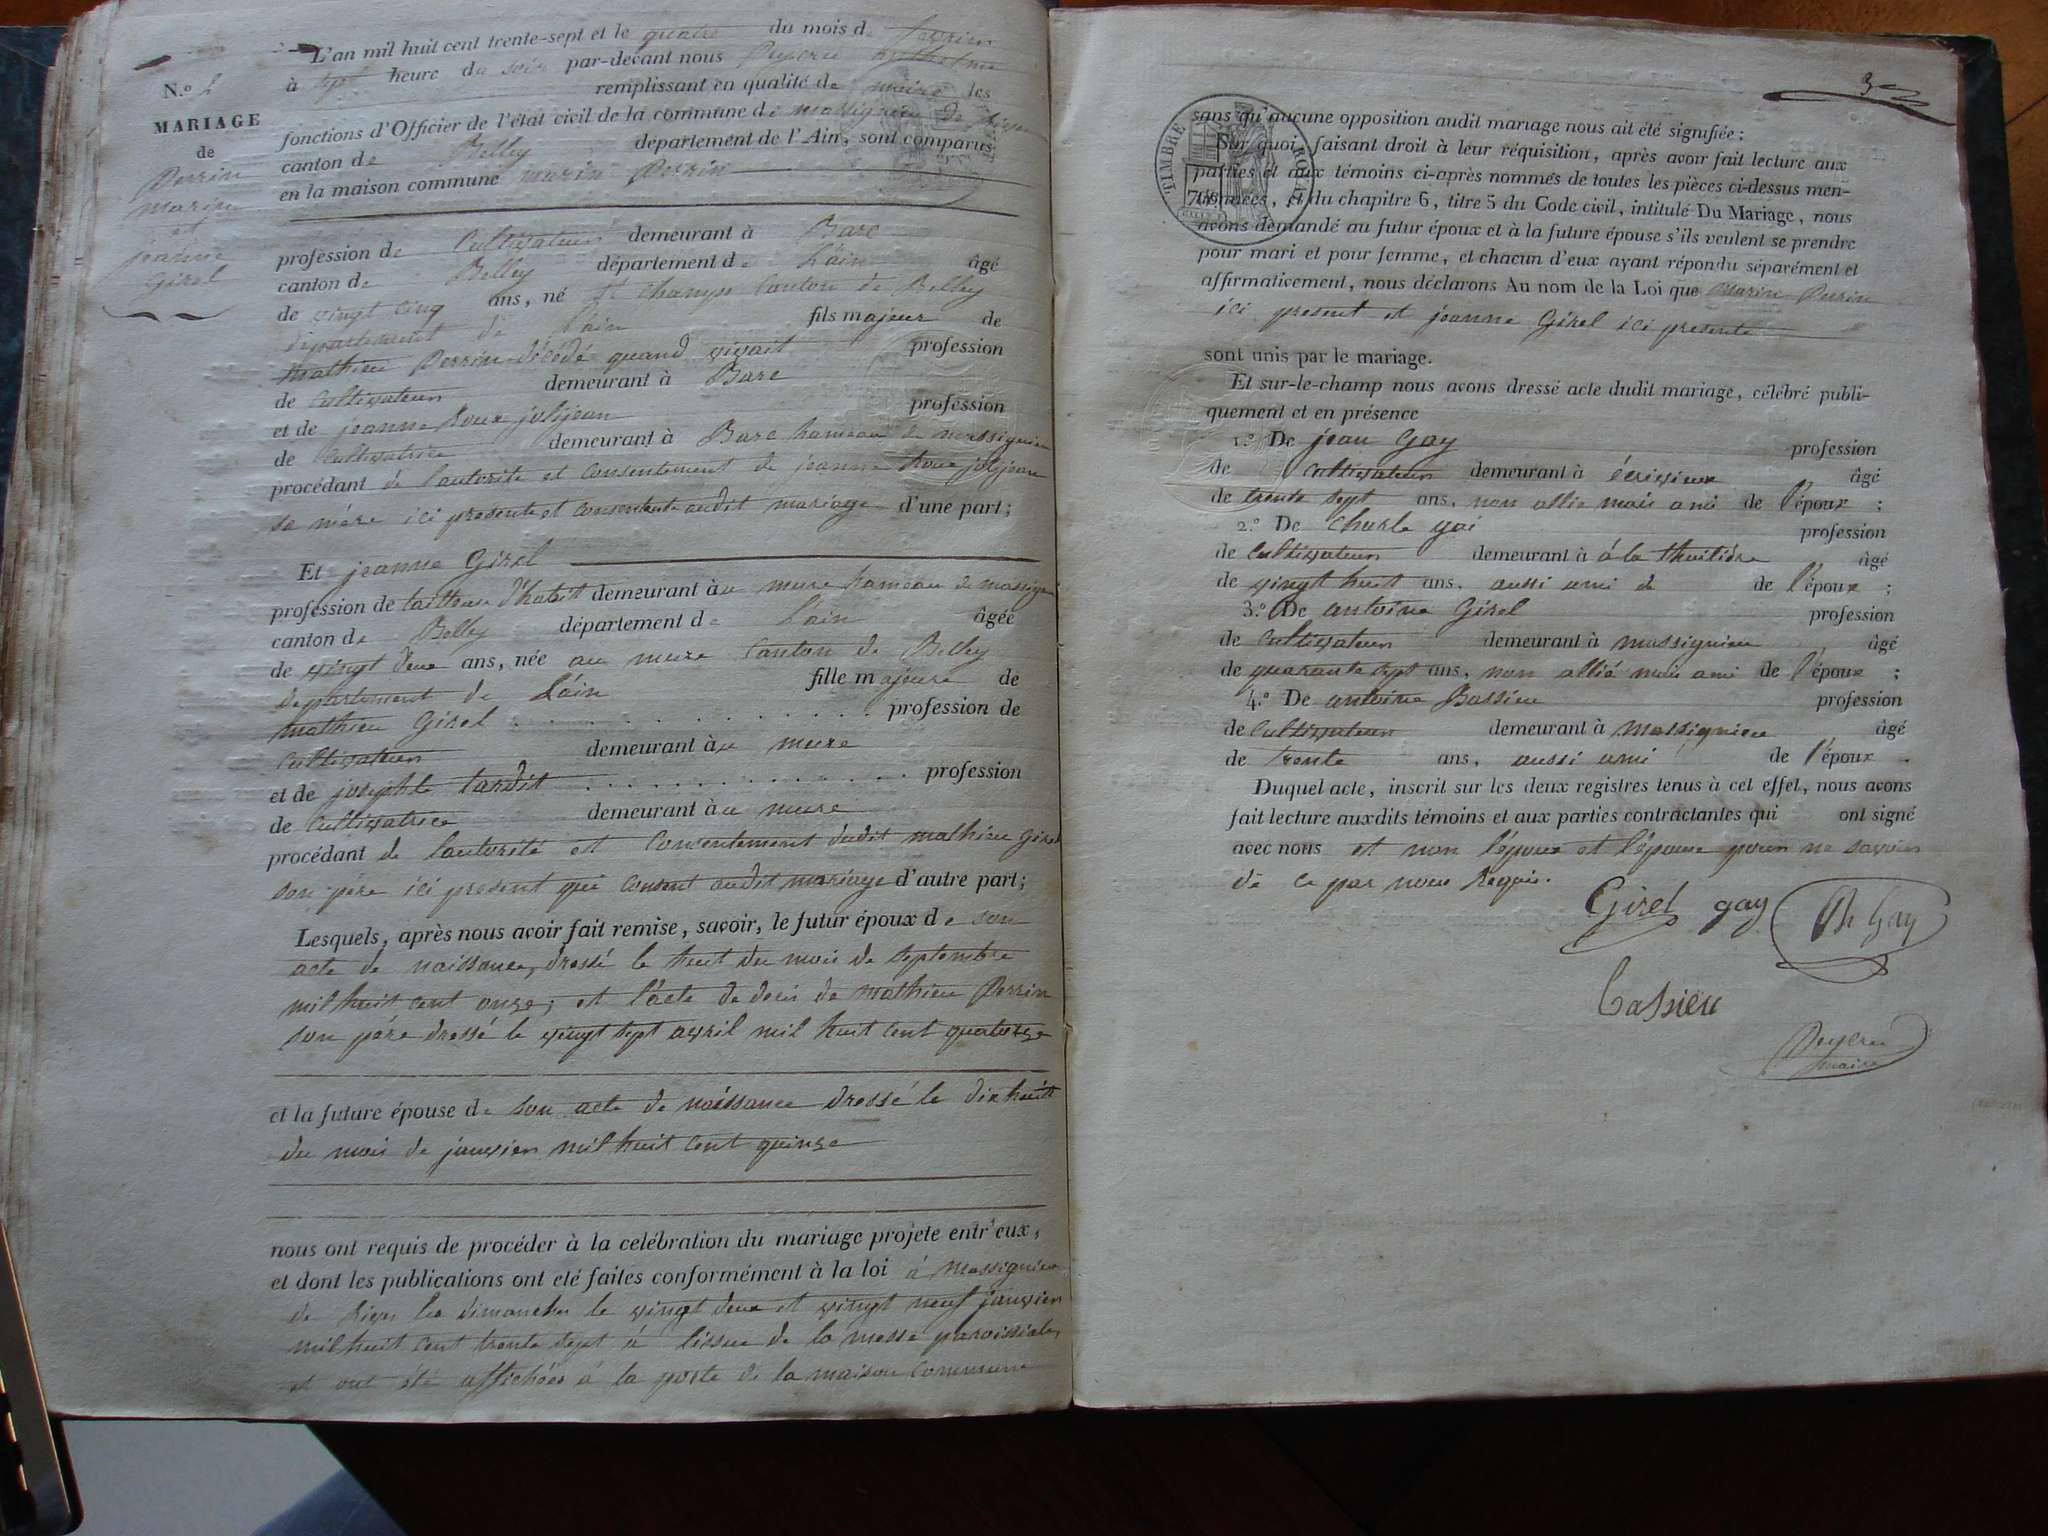 N.o 2
MARIAGE
de
Perrin
marin
et
jeanne
Girel
L'an mil huit cent trente-sept et le quatre du mois de fevrier
à sept heure du soir par-devant nous Peyeru Anthelme
remplissant en qualité de maire les
fonctions d'Officier de l'état civil de la commune de massignieu de
canton de Belley département de l'Ain, sont comparus
en la maison commune marin Perrin
profession de Cultivateur demeurant à Bare
canton de Belley département de L'ain âgé
de vingt cinq ans, né St Champs Canton de Belley
departement de L'ain fils majeur de
mathieu Perrin décédé quand vivait profession
de Cultivateur demeurant à Bare
et de jeanne Roux jolijean profession
de Cultivatrice demeurant à Bare hameau de massignieu
procédant de l'autorité et consentement de jeanne Roux jolijean
sa mére ici presente et consentente audit mariage d'une part;
Et jeanne Girel
profession de tailleuse d'habit demeurant àu mure hameau de massignieu
canton de Belley département de L'ain âgée
de vingt deux ans, née au mure Canton de Belley
departement de L'ain fille majeure de
mathieu Girel profession de
Cultivateur demeurant àu mure
et de josephte tardit profession
de Cultivatrice demeurant àu mure
procédant de l'autorité et Consentement dudit mathieu Girel
son pére ici present qui consent audit mariage d'autre part;
Lesquels, après nous avoir fait remise, savoir, le futur époux de son
acte de naissance, dressé le huit du mois de septembre
mil huit cent onze; et l'acte de decès de mathieu Perrin
son pére dressé le vingt sept avril mil huit cent quatorze
et la future épouse de son acte de naissance dressé le dix huit
du mois de janvier mil huit cent quinze
nous ont requis de procéder à la celébration du mariage projete entr'eux,
et dont les publications ont eté faites conformément à la loi à Massignieu
de rives les dimanches le vingt deux et vingt neuf janvier
mil huit cent trente sept à l'issue de la messe paroissiale
et ont été affichées à la porte de la maison commune
3
TIMBRE ROYAL
sans qu'aucune opposition audit mariage nous ait été signifiée;
Sur quoi, faisant droit à leur réquisition, après avoir fait lecture aux
parties et aux témoins ci-après nommés de toutes les pièces ci-dessus men-
tionnées, et du chapitre 6, titre 5 du Code civil, intitulé Du Mariage, nous
avons demandé au futur époux et à la future épouse s'ils veulent se prendre
pour mari et pour femme, et chacun d'eux ayant répondu séparément et
affirmativement, nous déclarons Au nom de la Loi que Marin Perrin
ici present et jeanne Girel ici presente
sont unis par le mariage.
Et sur-le-champ nous avons dressé acte dudit mariage, célébré publi-
quement et en présence
1.o De jean Gay profession
de Cultivateur demeurant à écrivieux âgé
de trente sept ans, non allié mais ami de l'époux ;
2.o De Charle gai profession
de Cultivateur demeurant à à la thuilière âgé
de vingt huit ans, aussi ami de de l'époux ;
3.o De antoine Girel profession
de Cultivateur demeurant à massignieu âgé
de quarante sept ans, non allié mais ami de l'époux ;
4.o De antoine Bassieu profession
de Cultivateur demeurant à Massignieu âgé
de trente ans, aussi ami de l'époux .
Duquel acte, inscrit sur les deux registres tenus à cet effet, nous avons
fait lecture auxdits témoins et aux parties contractantes qui ont signé
avec nous et non l'époux et l'épouse pour ne savoir
de ce par nous Requis.
Girel gay Ch Gay
Bassieu
Peyeru
maire